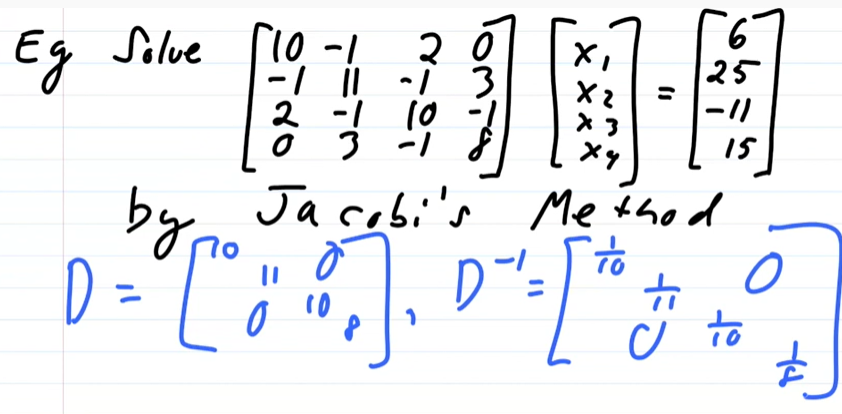 Eg Solve [10 -1 2 0; -1 11 -1 3; 2 -1 10 -1; 0 3 -1 8] [x₁; x₂; x₃; x₄] = [6; 25; -11; 15]
by Jacobi's Method
D = [10 11 0; 0 10 8], D⁻¹ = [1/10 1/11 0; 0 1/10 1/8]